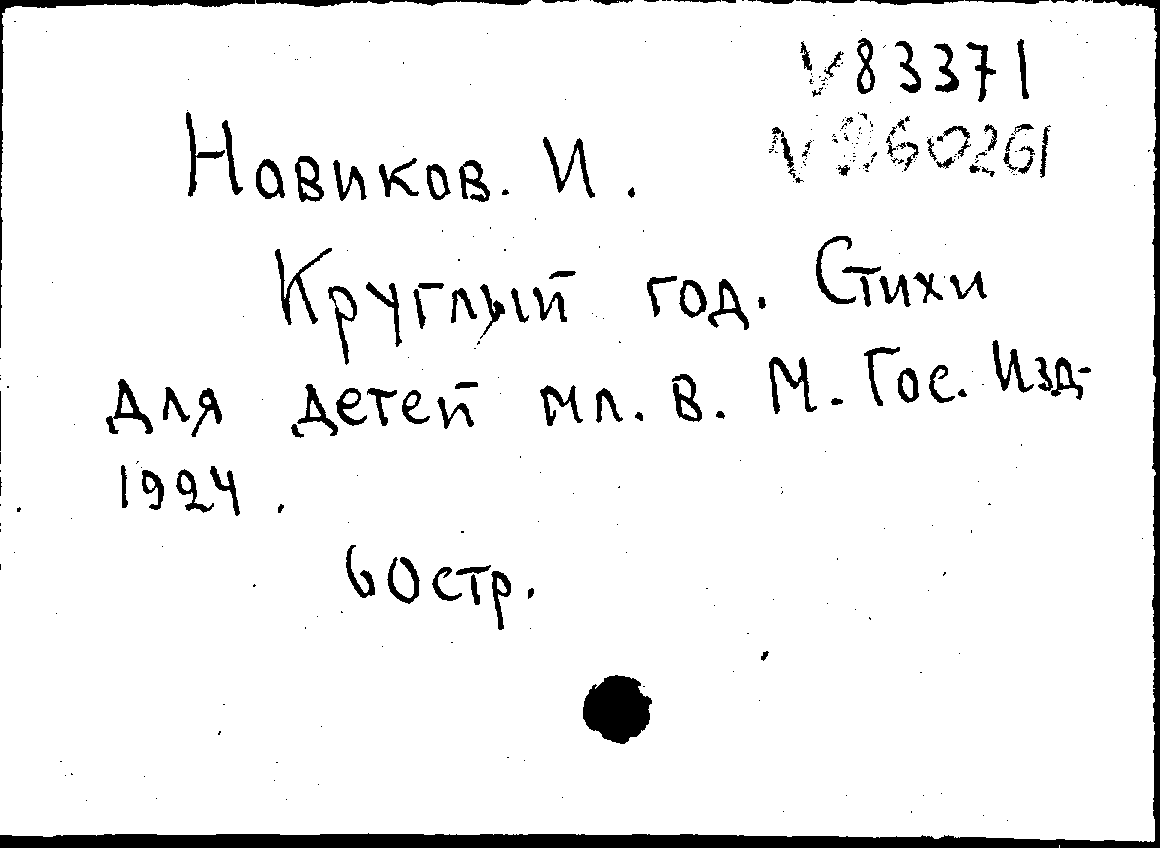 V 83371
V 260261
Новиков. И.
Круглый год. Стихи
для детей мл. в. М. Гос. Изд-
1924.
60 стр.